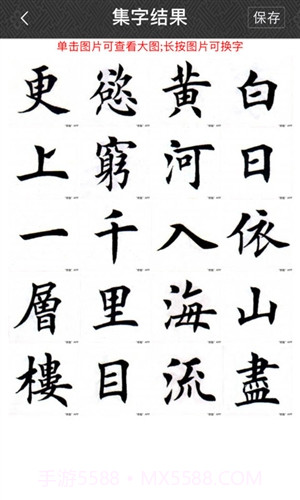 集字结果
保存
单击图片可查看大图;长按图片可换字
白日依山盡
黄河入海流
慾窮千里目
更上一層樓
手游5588·MX5588.COM